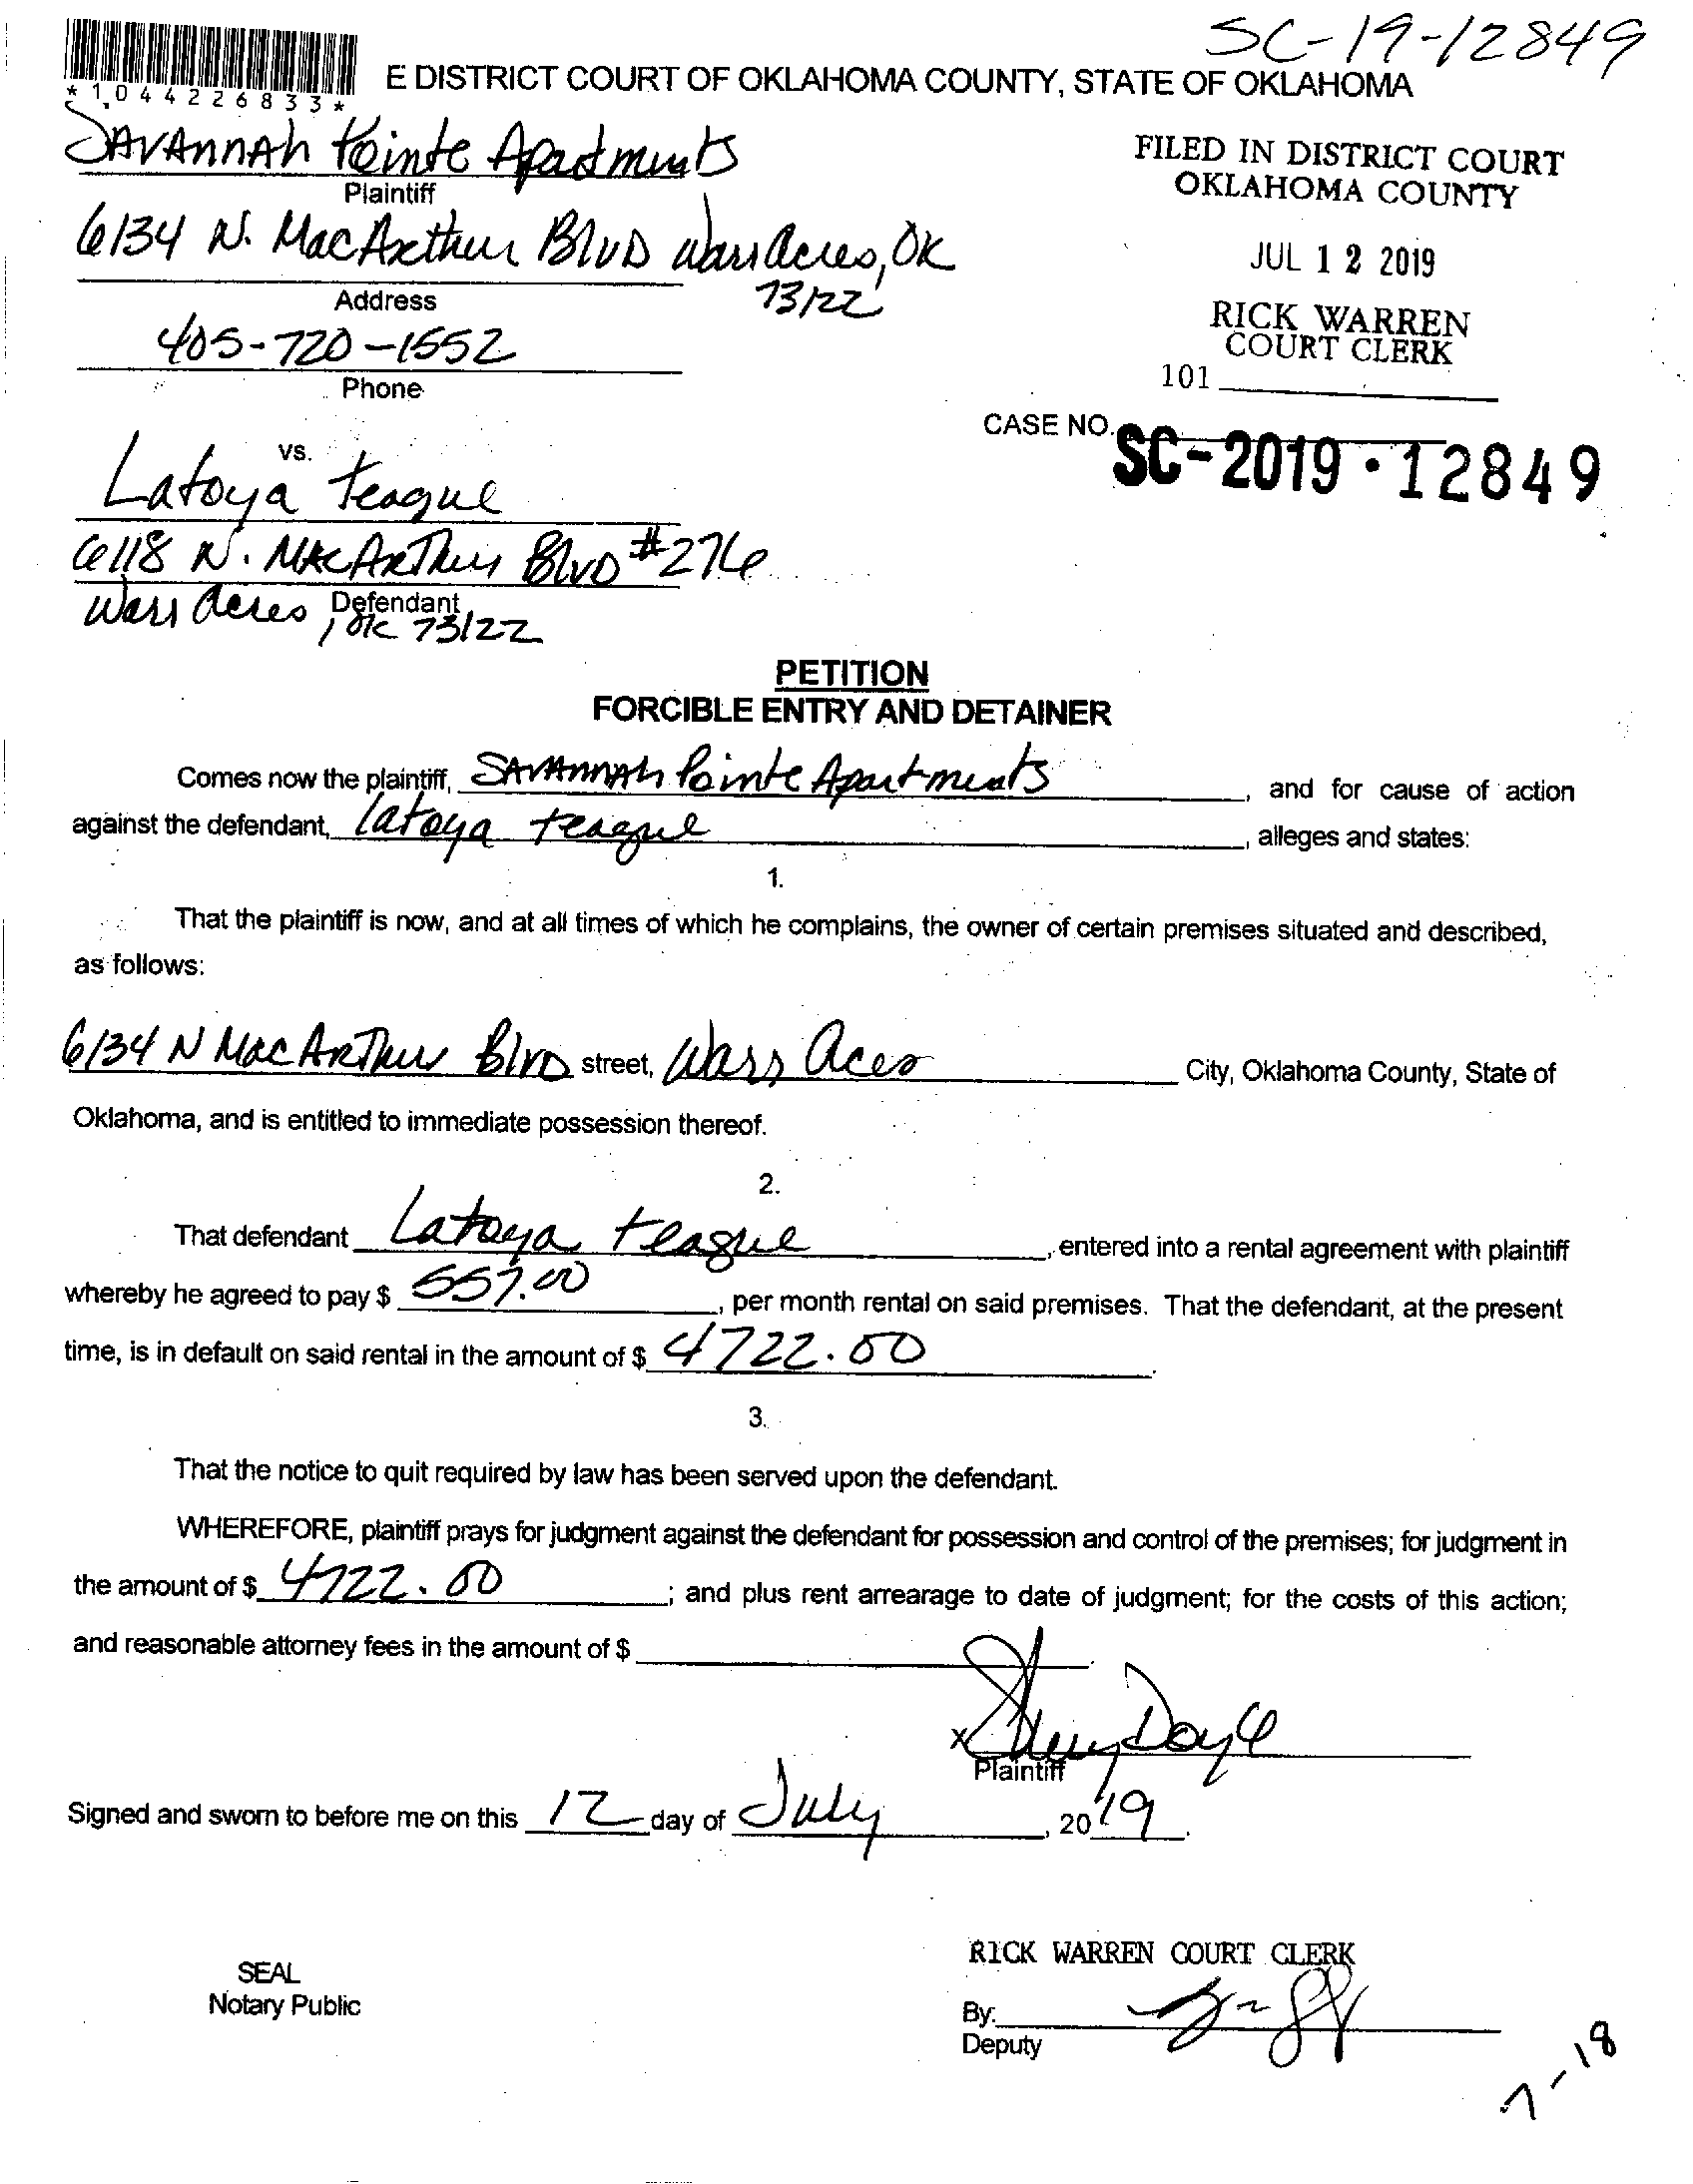 SC-19-12849
* 1 0 4 4 2 2 6 8 3 3 *
E DISTRICT COURT OF OKLAHOMA COUNTY, STATE OF OKLAHOMA
SAVANNAh Pointe Apartments
Plaintiff
FILED IN DISTRICT COURT
OKLAHOMA COUNTY
6134 N. MacArthur BLVD Warr Acres, OK
73122
Address
JUL 12 2019
405-720-1552
Phone
RICK WARREN
COURT CLERK
101
CASE NO.
SC-2019-12849
vs.
Latoya Teague
6118 N. MacArthur Blvd #276
Defendant
Warr Acres, OK 73122
PETITION
FORCIBLE ENTRY AND DETAINER
Comes now the plaintiff, SAVANNAh Pointe Apartments, and for cause of action
against the defendant, Latoya teague, alleges and states:
1.
That the plaintiff is now, and at all times of which he complains, the owner of certain premises situated and described,
as follows:
6134 N MacArthur Blvd street, Warr Acres City, Oklahoma County, State of
Oklahoma, and is entitled to immediate possession thereof.
2.
That defendant Latoya teague, entered into a rental agreement with plaintiff
whereby he agreed to pay $ 557.00, per month rental on said premises. That the defendant, at the present
time, is in default on said rental in the amount of $ 4722.00.
3.
That the notice to quit required by law has been served upon the defendant.
WHEREFORE, plaintiff prays for judgment against the defendant for possession and control of the premises; for judgment in
the amount of $ 4722.00; and plus rent arrearage to date of judgment; for the costs of this action;
and reasonable attorney fees in the amount of $
x Sherry Doyle
Plaintiff
Signed and sworn to before me on this 12 day of July, 2019.
SEAL
Notary Public
RICK WARREN COURT CLERK
By:
Deputy
7-18